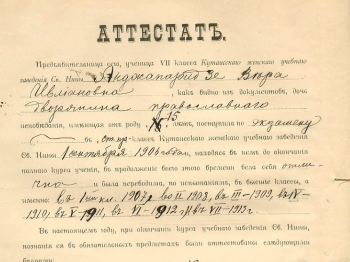 АТТЕСТАТЪ.
Предъявительница сего, ученица VII класса Кутаисскаго женскаго учебнаго
заведенія Св. Нины Анджапаридзе Вѣра
Ивліановна, какъ видно изъ документовъ, дочь
дворянина православнаго
исповѣданія, имѣющая отъ роду 15 лѣтъ, поступила по экзамену
въ классъ Кутаисскаго женскаго учебнаго заведенія
Св. Нины 1 сентября 1906 года, находясь въ немъ до окончанія
полнаго курса ученія, въ продолженіе всего времени вела себя отли-
чно и была переводима, по испытаніямъ, въ высшіе классы, а
именно: въ 1907, во II 1908, въ III-1909, въ IV-
1910, въ V-1911, въ VI-1912, и въ VII-1913 г.
Въ настоящемъ году, при окончаніи курса учебнаго заведенія Св. Нины,
познанія ея въ обязательныхъ предметахъ были аттестованы слѣдующими